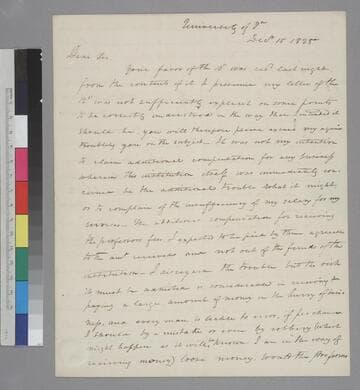 University of Va
Decr 15 1825
Dear Sir
Your favor of the 13th was recd last night
from the contents of it I presume my letter of the
12th was not sufficiently explicit on some points
to be correctly understood in the way that I intended it
should be you will therefore please excuse my again
troubling you on the subject. It was not my intention
to claim additional compensation for any services
wherein this institution itself was immediately con
cerned be the additional trouble what it might
or to complain of the insufficiency of my salary for my
services. The additional compensation for receiving
the professors fees I expected to be paid by them agreeable
to the amt received and not out of the funds of the
institution. I disregard the trouble but the risk
it must be admitted is considerable in receiving &
paying a large amount of money in the hurry of busi
ness, and every man is liable to error, if per chance
I should by a mistake or even by robbery (which
might happen as it is well known I am in the way of
receiving money) loose money. Would the Professors